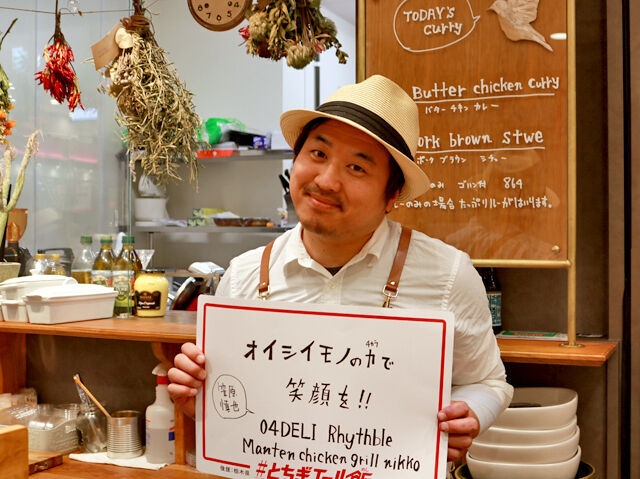 TODAY'S
CURRY
Butter chicken curry
バターチキンカレー
ork brown stwe
ポークブラウン シチュー
のみ ゴハン付 864
ーのみの場合 たっぷりルーがはいります。
オイシイモノの力で
チカラ
笑顔を!!
慎也
04DELI Rhythble
Manten chicken grill nikko
#とちぎエール飯